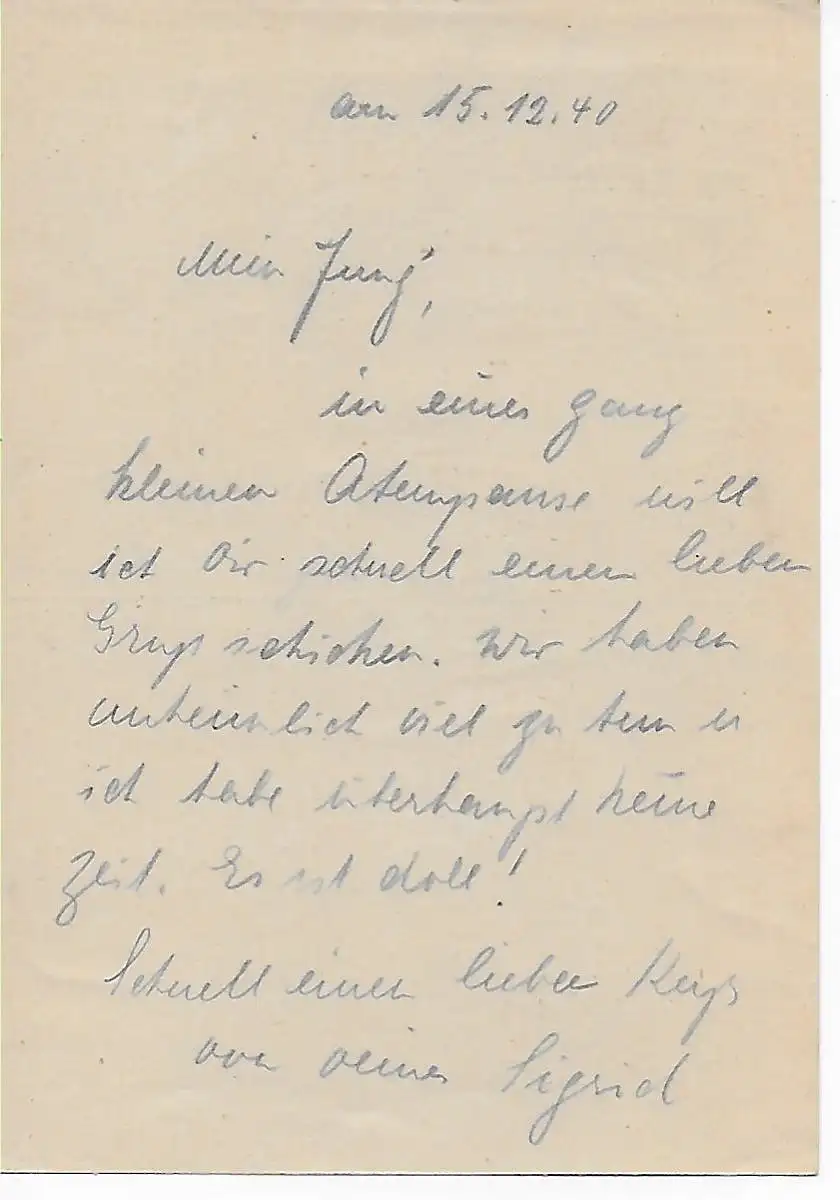 am 15.12.40
Mein Jung',
in einer ganz
kleinen Atempause will
ich Dir schnell einen lieben
Gruß schicken. Wir haben
unheimlich viel zu tun u
ich habe überhaupt keine
Zeit. Es ist doll!
Schnell einen lieben Kuß
von Deiner Sigrid